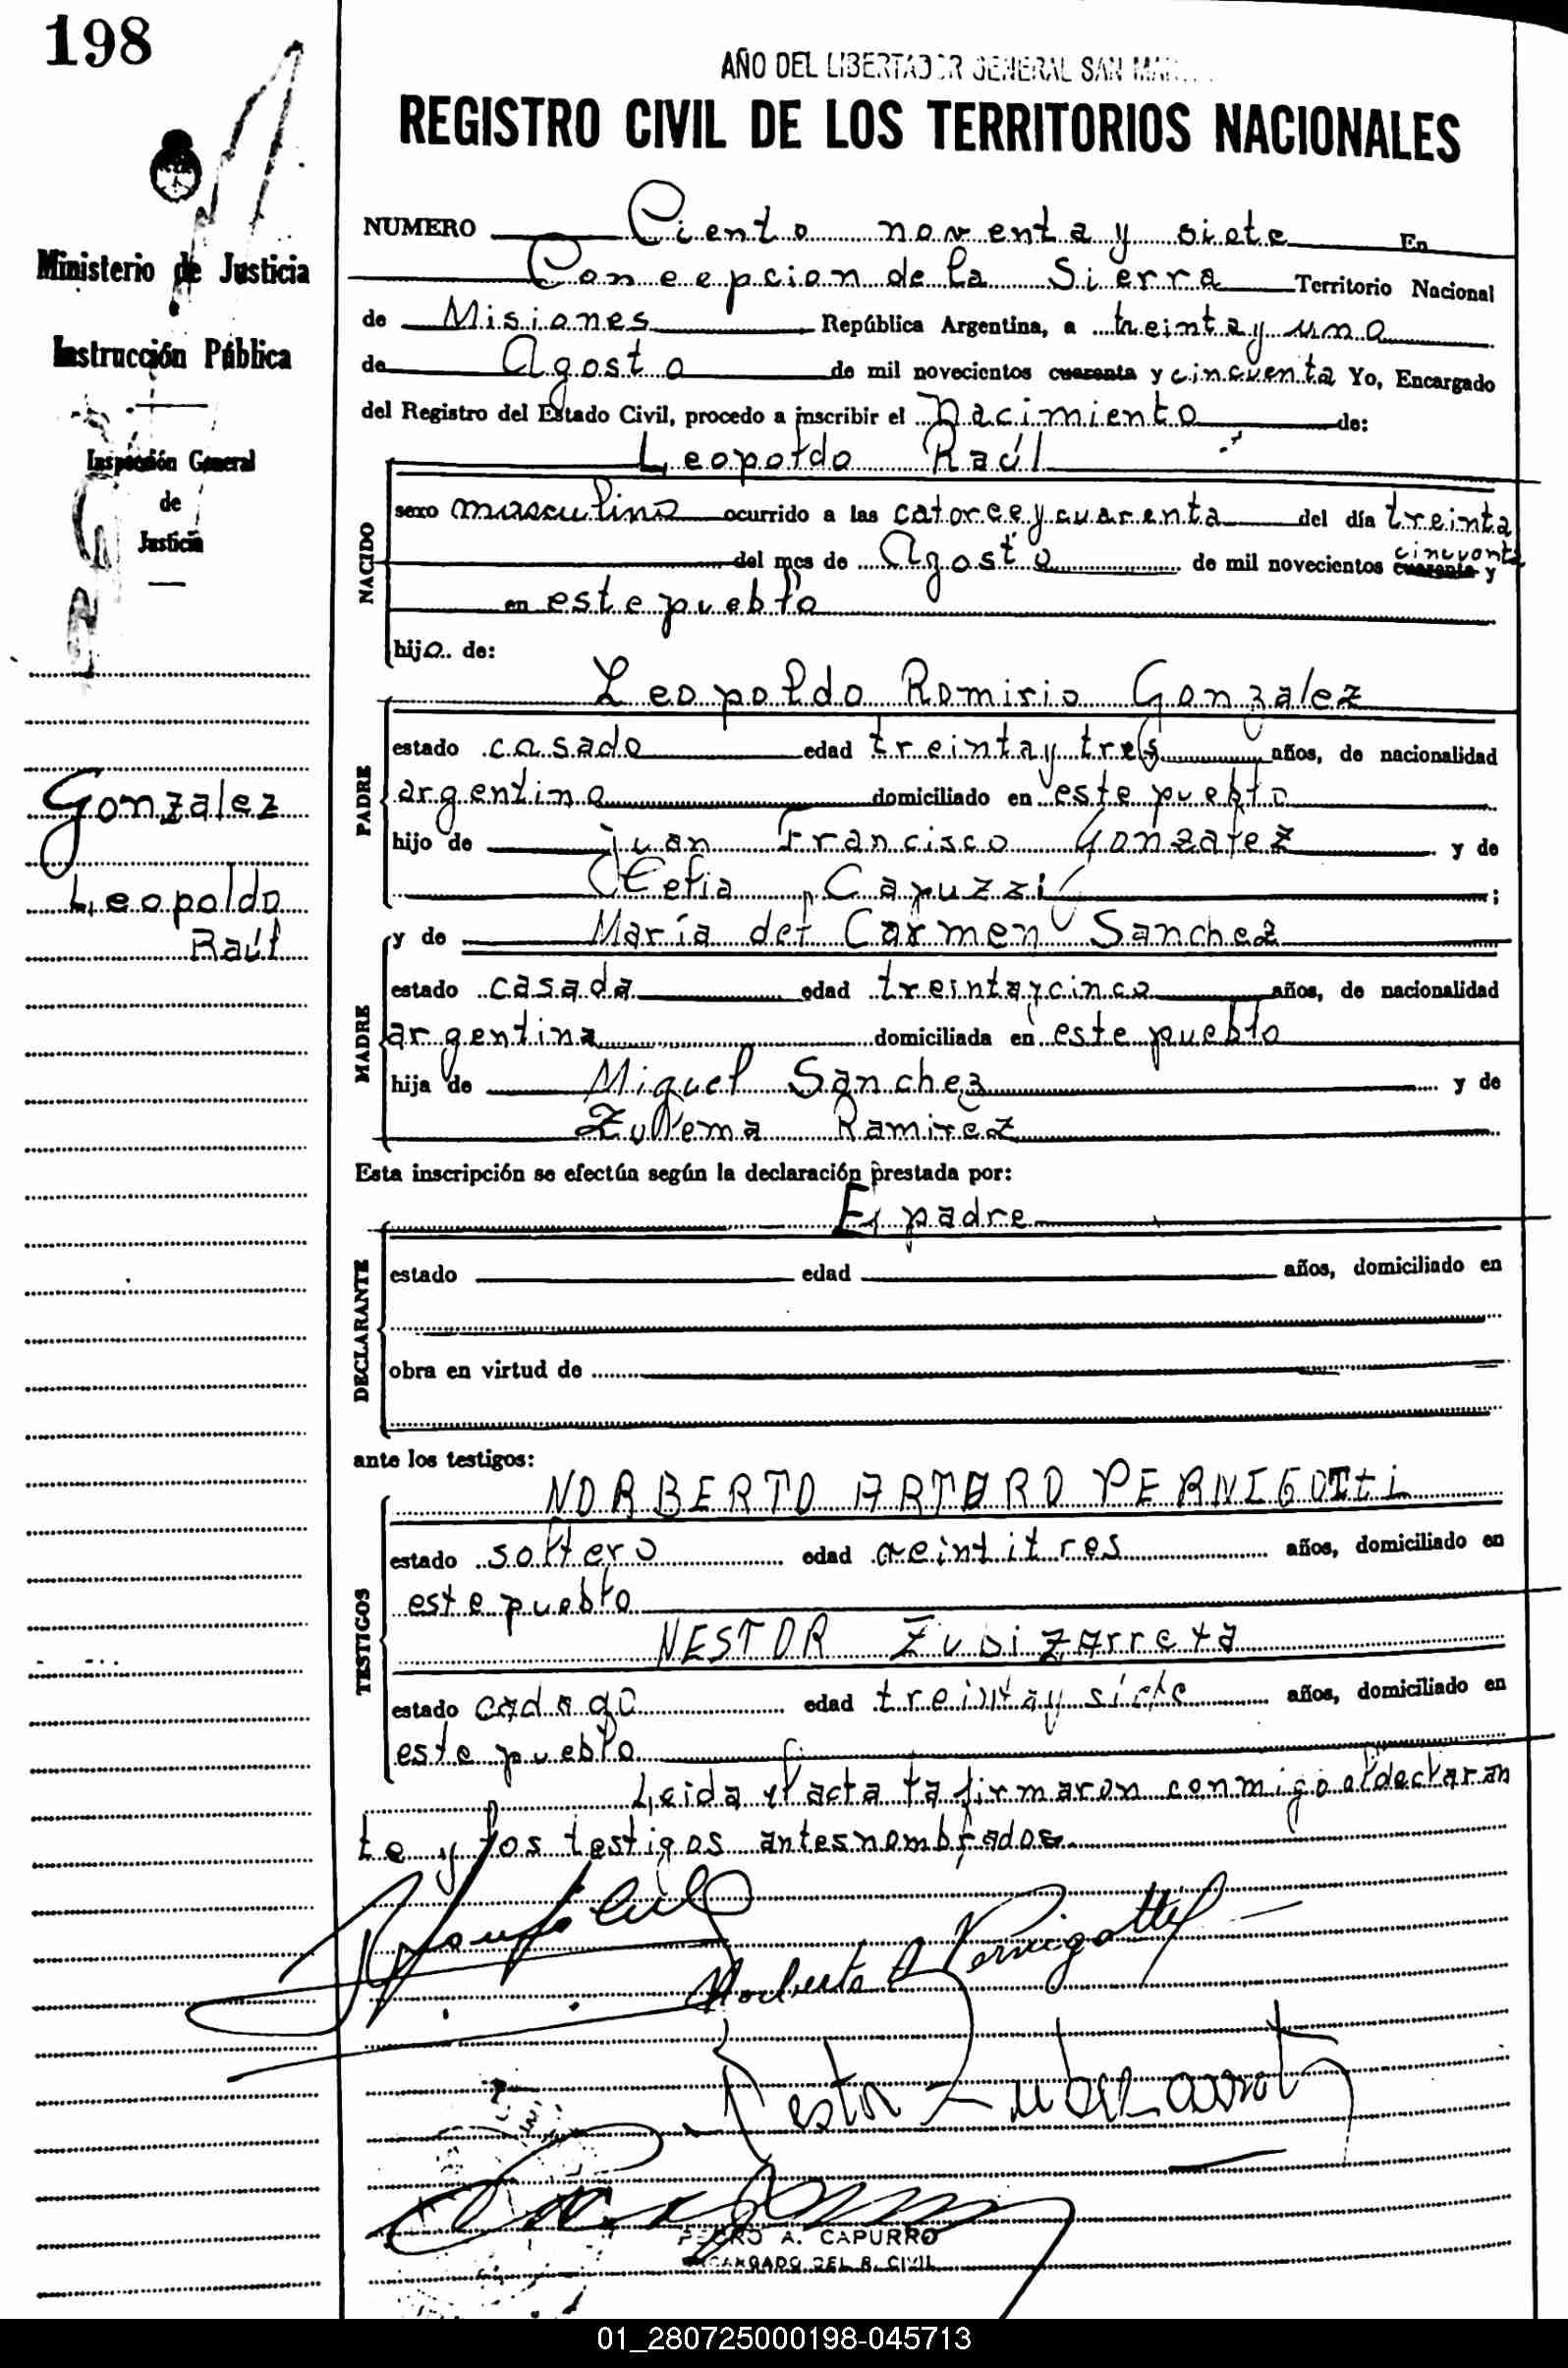 198
AÑO DEL LIBERTADOR GENERAL SAN
REGISTRO CIVIL DE LOS TERRITORIOS NACIONALES
Ministerio de Justicia
Instrucción Pública
Inspección General
de
Justicia
Gonzalez
Leopoldo
Raúl
NUMERO Ciento noventa y siete En
Concepcion de la Sierra Territorio Nacional
de Misiones República Argentina, a treinta y uno
de Agosto de mil novecientos cuarenta y cincuenta Yo, Encargado
del Registro del Estado Civil, procedo a inscribir el nacimiento de:
Leopoldo Raúl
NACIDO
sexo masculino ocurrido a las catorce y cuarenta del día treinta
del mes de Agosto de mil novecientos cuarenta y cincuenta
en este pueblo
hijo de:
Leopoldo Romirio Gonzalez
PADRE
estado casado edad treinta y tres años, de nacionalidad
argentino domiciliado en este pueblo
hijo de juan Francisco Gonzalez y de
Clelia Capuzzi ;
MADRE
y de María del Carmen Sanchez
estado casada edad treinta y cinco años, de nacionalidad
argentina domiciliada en este pueblo
hija de Miguel Sanchez y de
Zulema Ramirez
Esta inscripción se efectúa según la declaración prestada por:
El padre
DECLARANTE
estado edad años, domiciliado en
obra en virtud de
ante los testigos:
TESTIGOS
NORBERTO ARTURO PERNIGOTti
estado soltero edad veintitres años, domiciliado en
este pueblo
NESTOR Zubizarreta
estado cadado edad treintay siete años, domiciliado en
este pueblo
Leida el acta la firmaron conmigo el declaran
te y los testigos antes nombrados
Norberto A Pernigotti
Nestor Zubizarreta
PEDRO A. CAPURRO
ENCARGADO DEL R. CIVIL
01_280725000198-045713